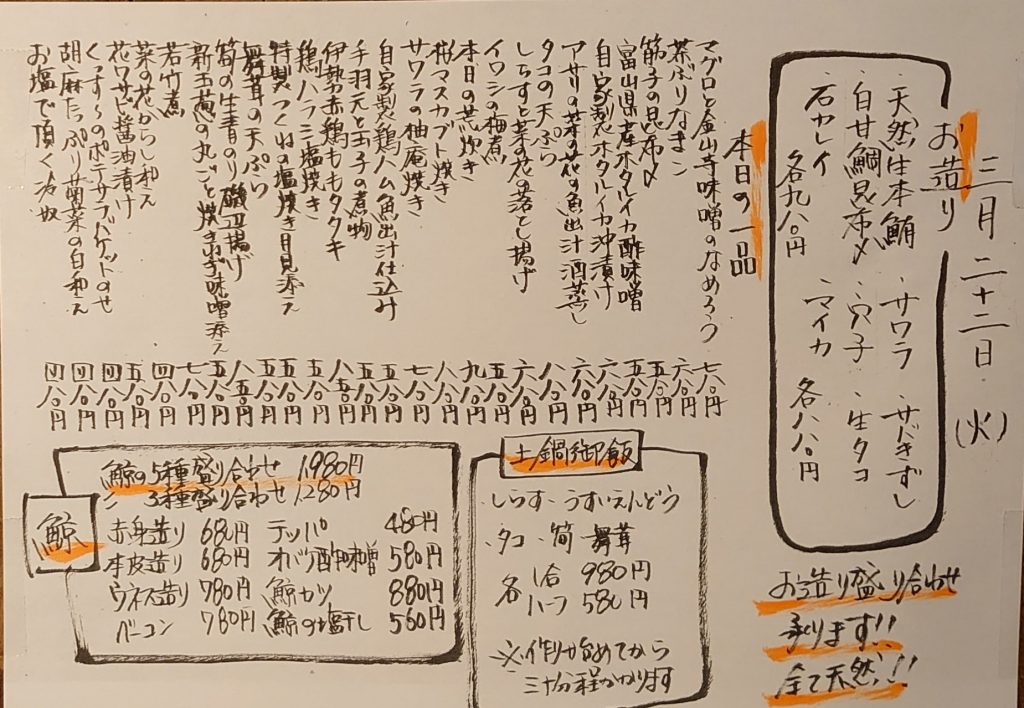 三月二十二日(火)
お造り
・天然生本鮪 ・サワラ ・サバきずし
・白甘鯛昆布〆 ・穴子 ・生タコ
・石カレイ ・マイカ
各九八〇円 各八八〇円
お造り盛り合わせ
承ります!!
全て天然!!
本日の一品
マグロと金山寺味噌のなめろう 七八〇円
茶ぶりなまこ 六八〇円
筋子の昆布〆 五八〇円
富山県産ホタルイカ酢味噌 五八〇円
自家製ホタルイカ沖漬け 六八〇円
アサリの菜の花の魚出汁酒蒸し 六八〇円
タコの天ぷら 八八〇円
しらすと菜の花の落とし揚げ 六八〇円
イワシの梅煮 五八〇円
本日の荒炊き 九八〇円
桜マスカブト焼き 八八〇円
サワラの柚庵焼き 七八〇円
自家製鶏ハム魚出汁仕込み 八八〇円
手羽元と玉子の煮物 五八〇円
伊勢赤鶏ももタタキ 八五〇円
鶏ハラミ塩焼き 五八〇円
特製つくねの塩焼き月見添え 五八〇円
舞茸の天ぷら 五八〇円
筍の生青のり磯辺揚げ 八五〇円
新玉葱の丸ごと焼き 味噌添え 五八〇円
若竹煮 七八〇円
菜の花からし和え 四八〇円
花ワサビ醤油漬け 五八〇円
ポテサラバケットのせ 四八〇円
胡麻たっぷり菊菜の白和え 四八〇円
お塩で頂く冷奴 四八〇円
土鍋御飯
・しらす・うすいえんどう
・タコ ・筍 舞茸
各 1合 980円
ハーフ 580円
※作り始めてから
三十分程かかります
鯨
鯨の5種盛り合わせ 1,980円
〃 3種盛り合わせ 1,280円
赤身造り 680円 テッパ 480円
本皮造り 680円 オバケ酢味噌 580円
ウネス造り 780円 鯨カツ 880円
ベーコン 780円 鯨の塩干し 560円